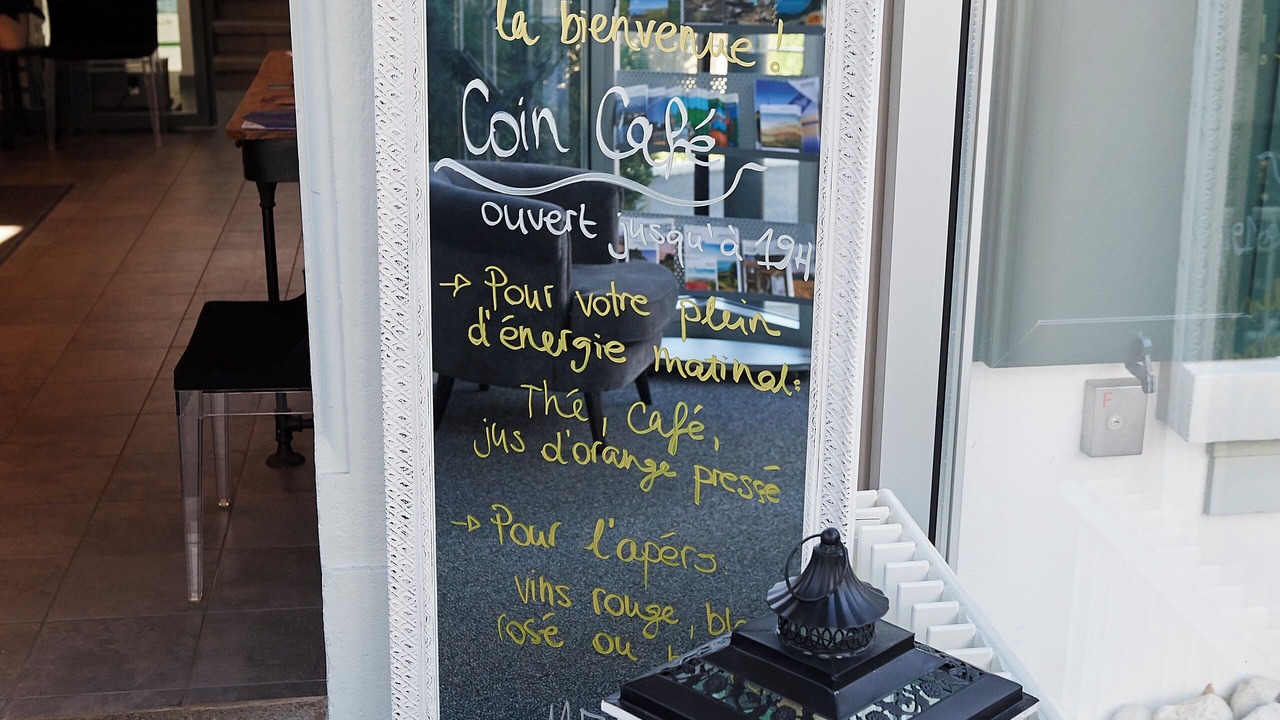 la bienvenue !
Coin Café
ouvert jusqu'à 19H
→ Pour votre plein
d'énergie matinal:
Thé, Café,
jus d'orange pressé
→ Pour l'apéro
vins rouge,
rosé ou
F